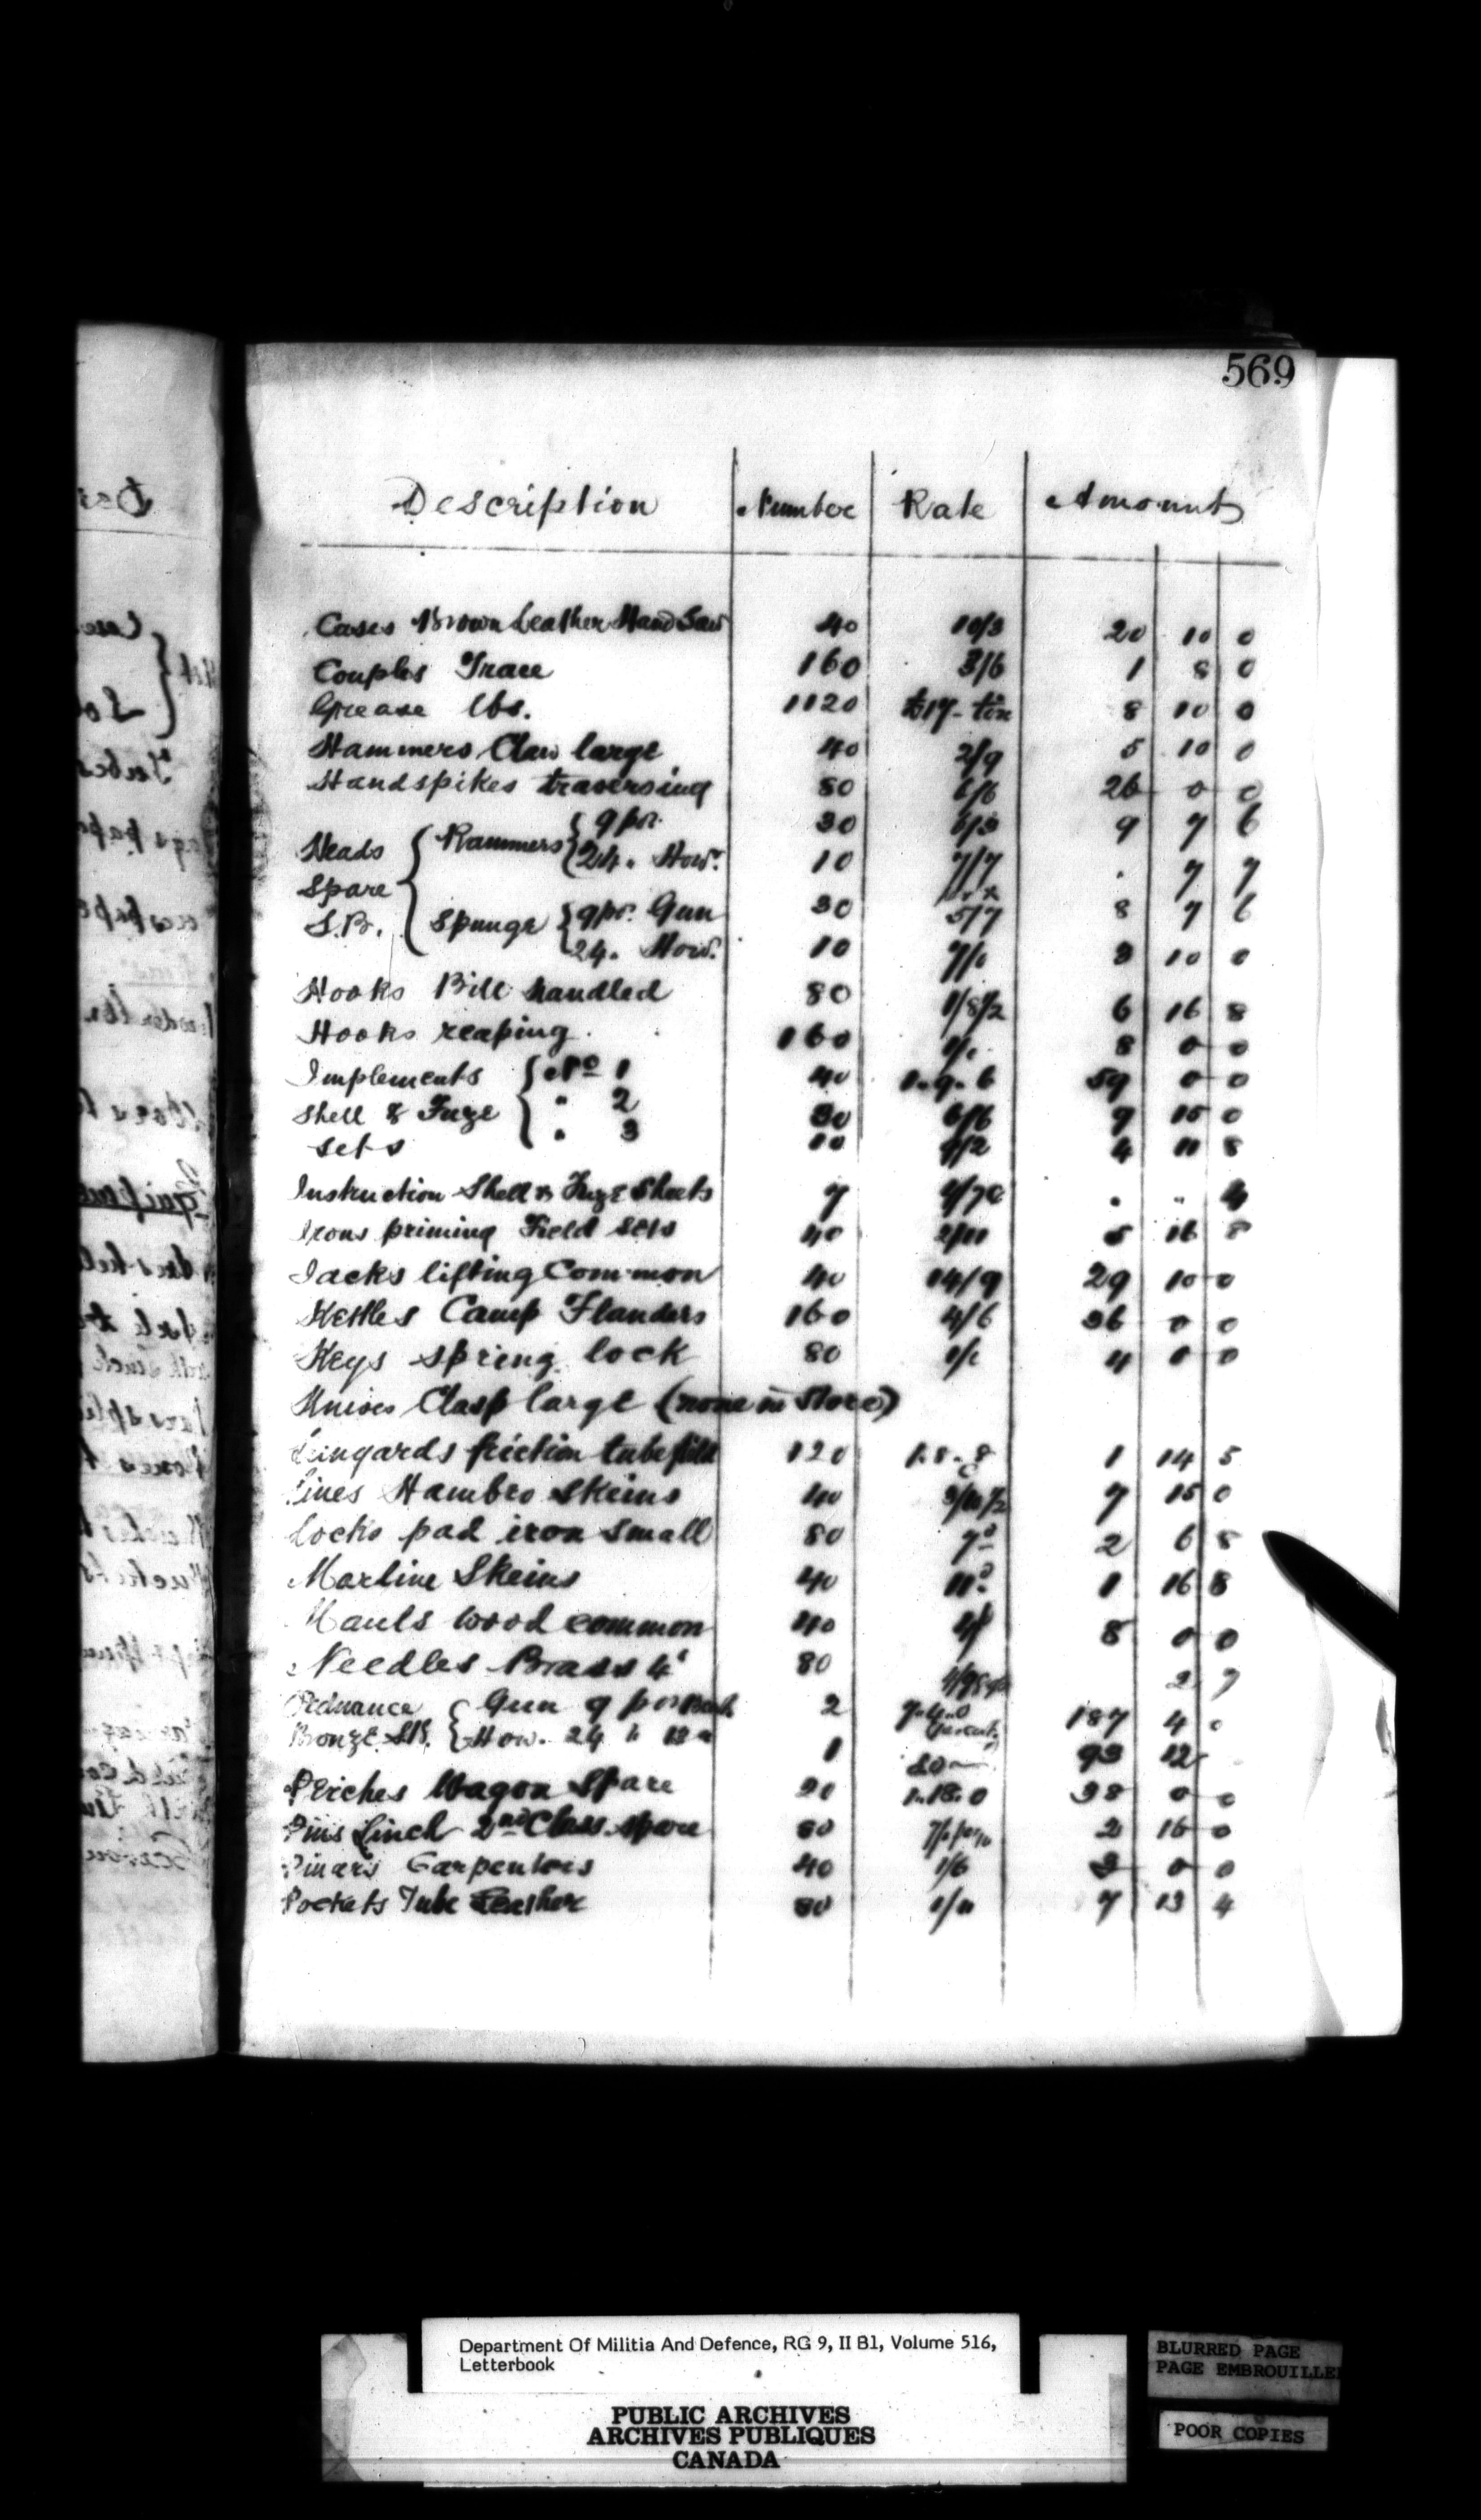 569
Description Number Rate Amount
Cases Brown Leather Hand Saw 40 10/3 20 10 0
Couples Trace 160 3/6 1 8 0
Grease lbs. 1120 £17- ton 8 10 0
Hammers Claw large 40 2/9 5 10 0
Handspikes traversing 80 6/6 26 0 0
Heads Spare S.B. Rammers 9 pr. 30 6/3 9 7 6
24. How. 10 7/7 . 7 7
Spunge 9 pr. Gun 30 5/7 8 7 6
24. How. 10 7/. 3 10 0
Hooks Bill handled 80 1/8½ 6 16 8
Hooks reaping 160 1/. 8 0 0
Implements Shell & Fuze sets No 1 40 1.9.6 59 0 0
" 2 30 6/6 9 15 0
" 3 10 9/2 4 11 8
Instruction Shell & Fuze Sheets 7 . " 4
Irons priming Field sets 40 2/11 5 16 8
Jacks lifting Common 40 14/9 29 10 0
Kettles Camp Flanders 160 4/6 36 0 0
Keys spring lock 80 1/. 4 0 0
Knives Clasp large (none in Store)
Laingards friction tube field 120 1.8.8 1 14 5
Lines Hambro Skeins 40 3/10½ 7 15 0
Locks pad iron small 80 7d 2 6 8
Marline Skeins 40 11d 1 16 8
Mauls wood common 40 4/ 8 0 0
Needles Brass 4" 80 2 7
Ordnance Bronze S.B. Gun 9 pr 2 187 4 0
How. 24 " 12 " 1 do 93 12
Perches Wagon Spare 20 1.18.0 38 0 0
Pins Linch 2nd Class spare 80 2 16 0
Pincers Carpenters 40 1/6 3 0 0
Pockets Tube Leather 80 1/11 7 13 4
Department Of Militia And Defence, RG 9, II B1, Volume 516,
Letterbook
PUBLIC ARCHIVES
ARCHIVES PUBLIQUES
CANADA
BLURRED PAGE
PAGE EMBROUILLE
POOR COPIES